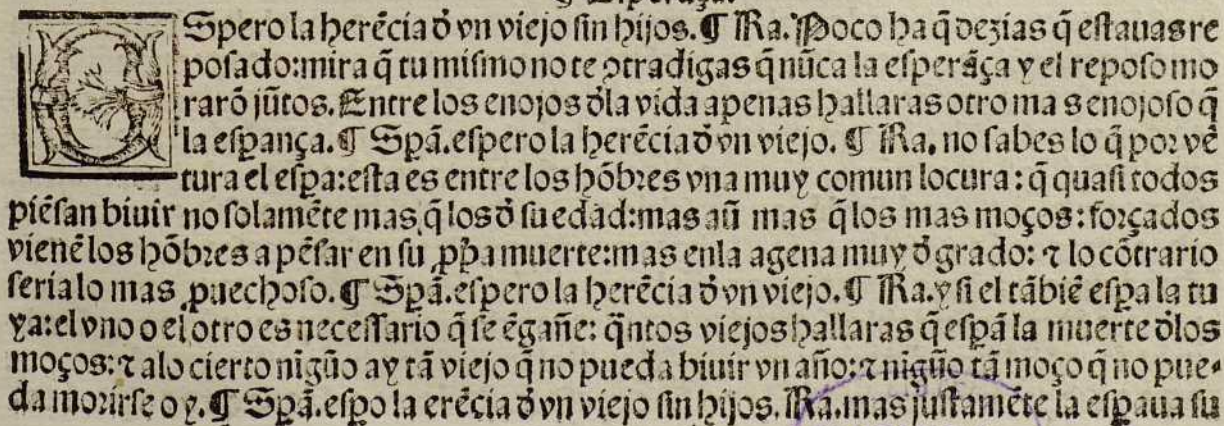 ESpero la herẽcia đ vn viejo ſin hijos. ¶ Ra. Poco ha q̃ dezias q̃ eſtauas re
poſado: mira q̃ tu miſmo no te ↄtradigas q̃ nũca la eſperãça y el repoſo mo
rarõ jũtos. Entre los enojos đla vida apenas hallaras otro ma s enojoſo q̃
la eſꝑança. ¶ Sꝑã. eſpero la herẽcia đ vn viejo. ¶ Ra. no ſabes lo q̃ por vẽ
tura el eſꝑa: eſta es entre los hõbres vna muy comun locura: q̃ quaſi todos
piẽſan biuir no ſolamẽte mas q̃ los đ ſu edad: mas aũ mas q̃ los mas moços: forçados
vienẽ los hõbres a pẽſar en ſu ꝓpia muerte: mas enla agena muy đ grado: ⁊ lo cõtrario
ſeria lo mas ꝓuechoſo. ¶ Sꝑã. eſpero la herẽcia đ vn viejo. ¶ Ra. y ſi el tãbiẽ eſꝑa la tu
ya: el vno o el otro es neceſſario q̃ ſe ẽgañe: q̃ntos viejos hallaras q̃ eſꝑã la muerte đlos
moços: ⁊ alo cierto nigũo ay tã viejo q̃ no pueda biuir vn año: ⁊ nigũo tã moço q̃ no pue⸗
da morirſe oy. ¶ Sꝑã. eſꝑo la erẽcia đ vn viejo ſin hijos. Ra. mas juſtamẽte la eſꝑaua ſu